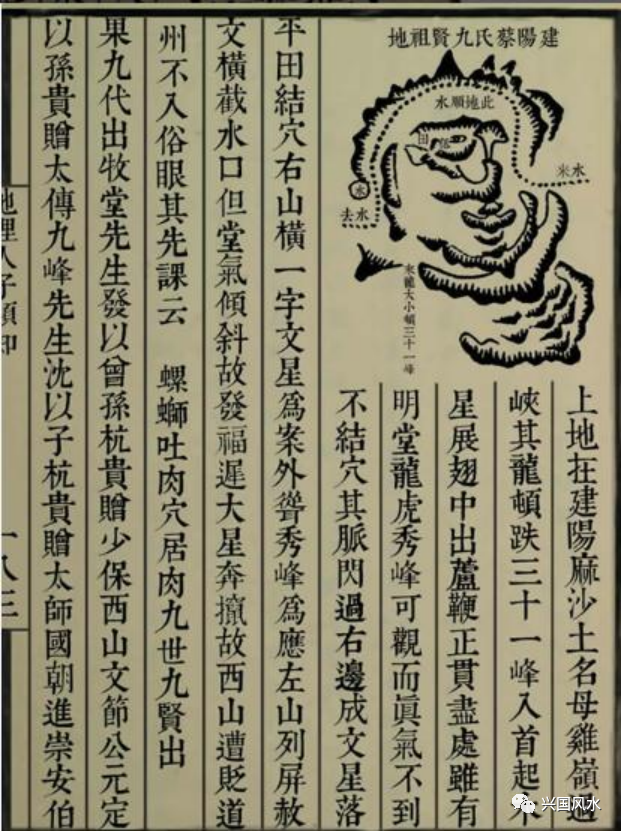 建陽蔡氏九賢祖地
此地順水
田
水來
水
水去
來龍大小頓三十一峰
上地在建陽麻沙土名母雞嶺過
峽其龍頓跌三十一峰入首起
星展翅中出蘆鞭正貫盡處雖有
明堂龍虎秀峰可觀而眞氣不到
不結穴其脈閃過右邊成文星落
平田結穴右山橫一字文星爲案外聳秀峰爲應左山列屏赦
文橫截水口但堂氣傾斜故發福遲大星奔攛故西山遭貶道
州不入俗眼其先課云 螺螄吐肉穴居肉九世九賢出
果九代出牧堂先生發以曾孫杭貴贈少保西山文節公元定
以孫貴贈太傅九峰先生沈以子杭貴贈太師國朝進崇安伯
地理人子須知
一八三
兴国风水